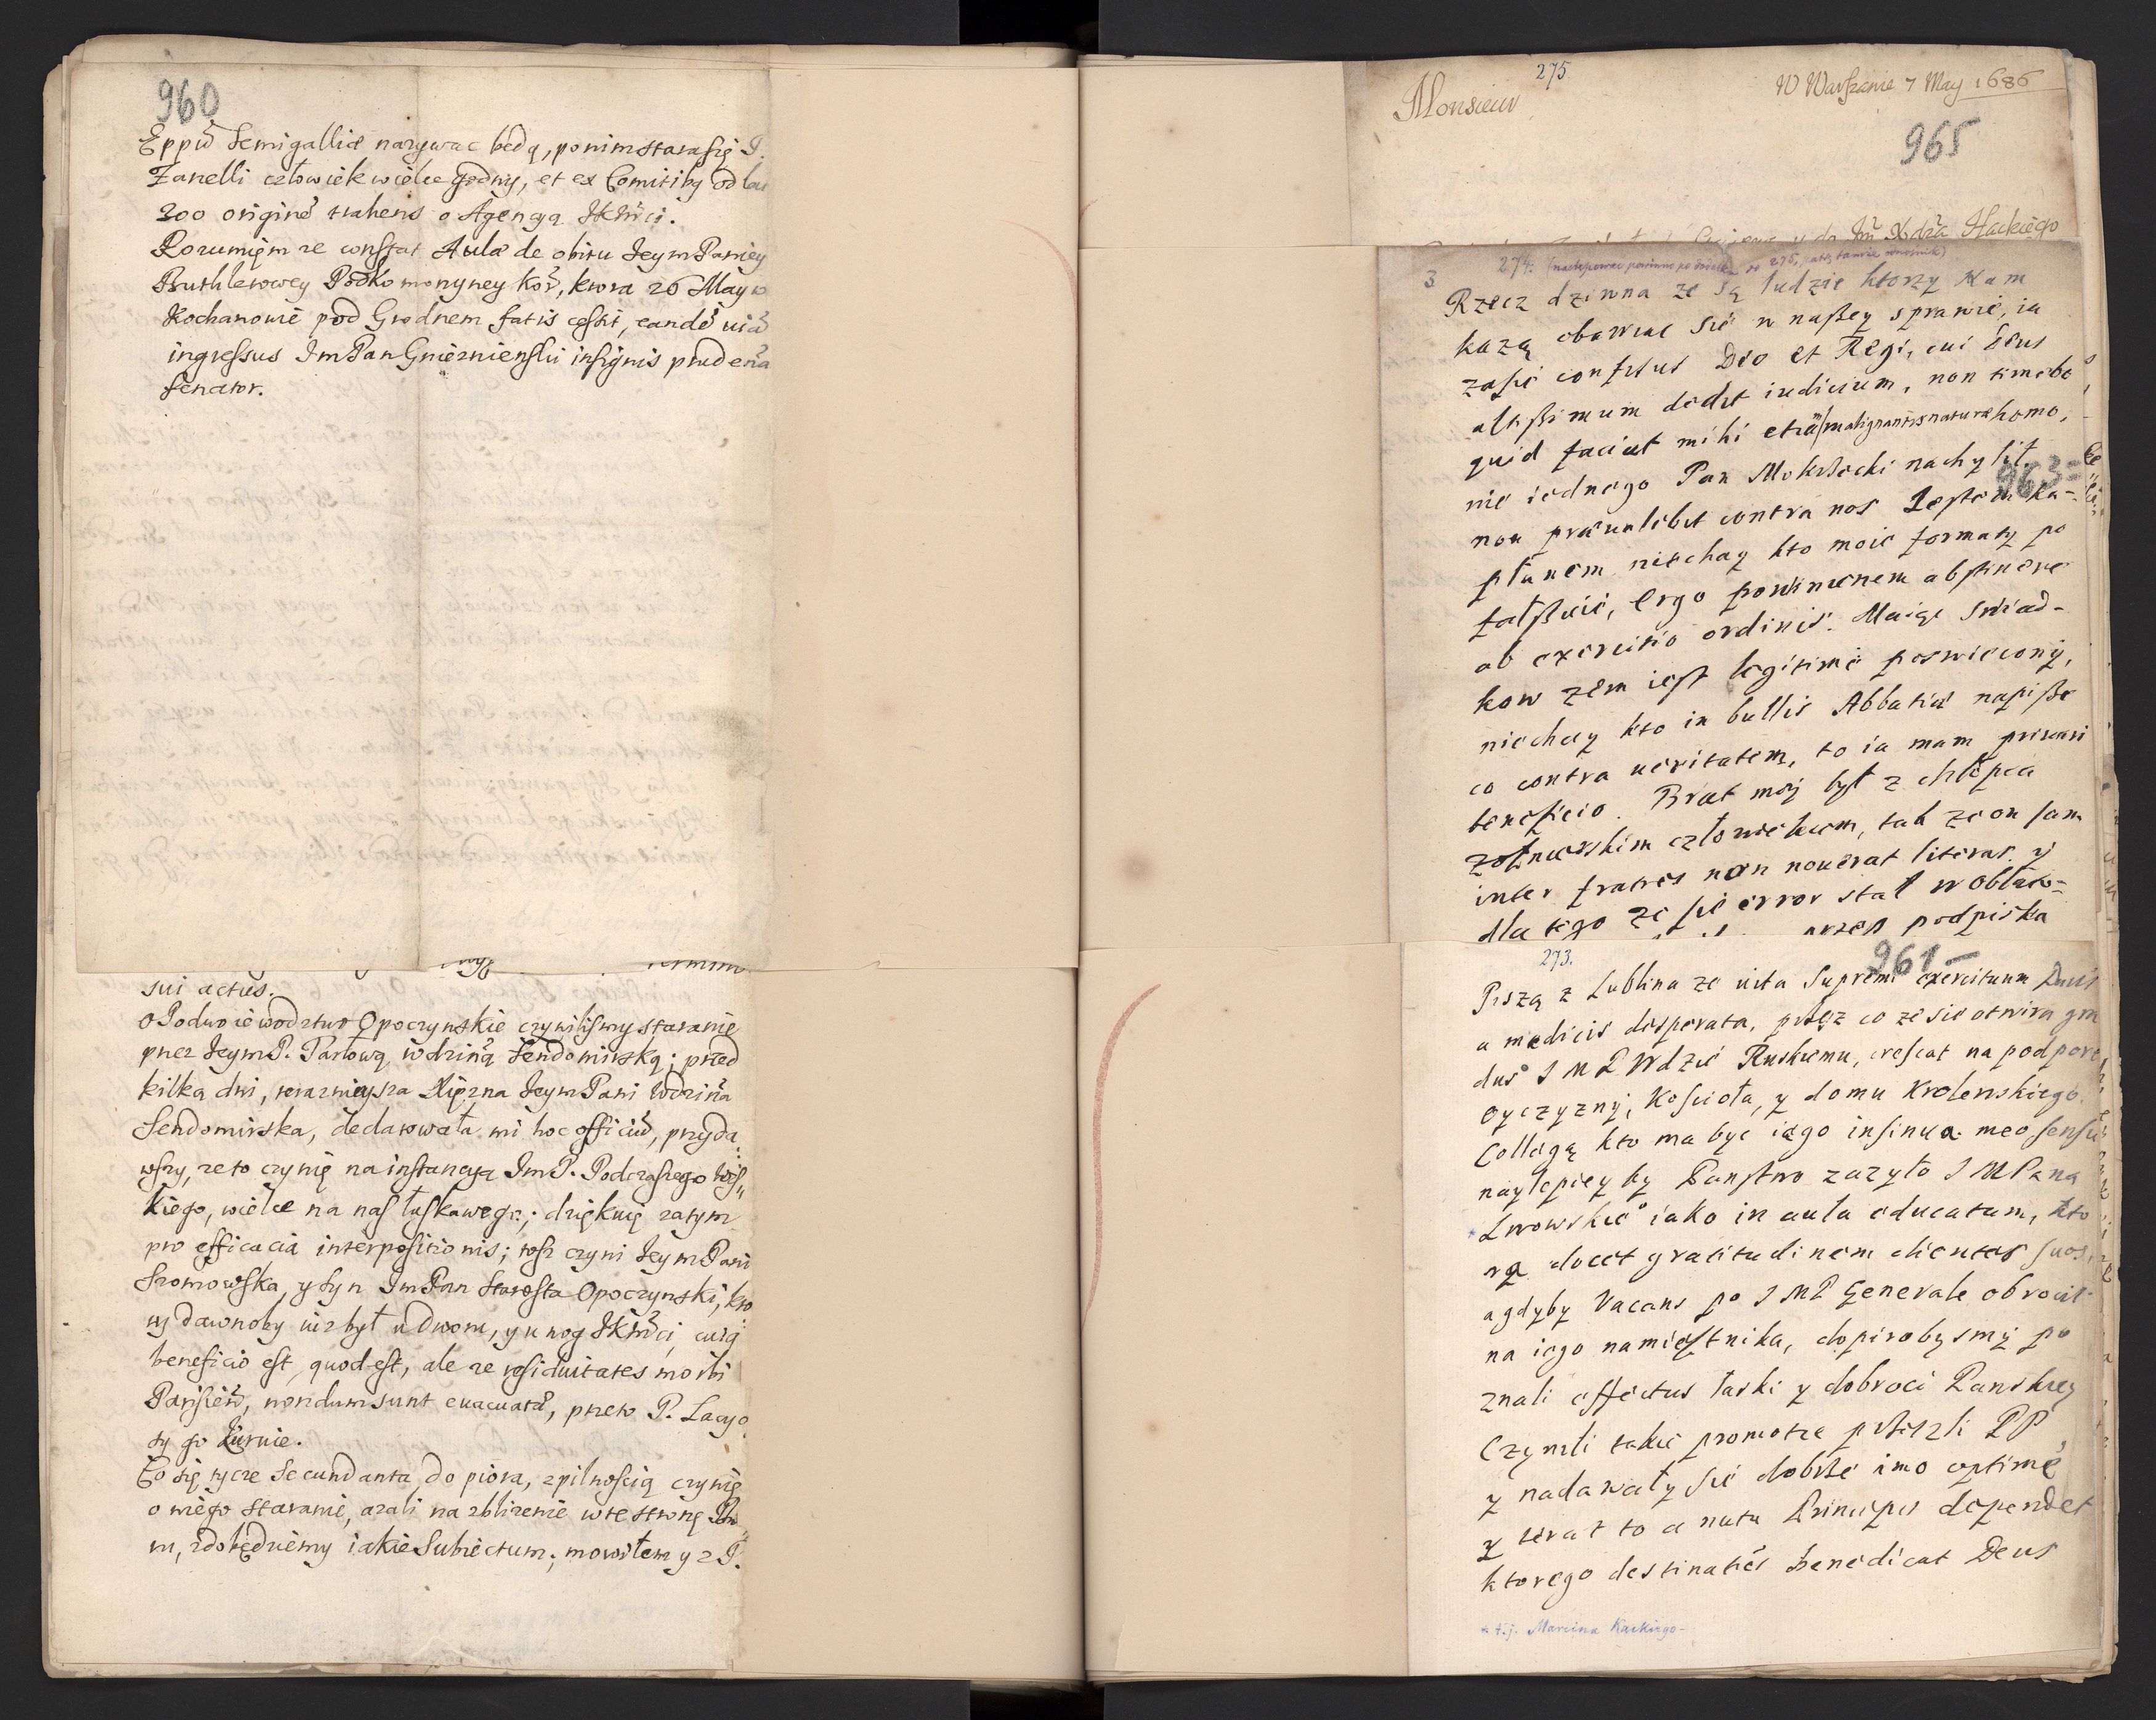 960
Eppũ Semigalliæ nazywac bedą, ponim stara się P.
Zanelli człowiek wielce godny, et ex Comitibus od lat
200 originẽ trahens o Agencyą JKMci.
Rozumięm ze constat Aulæ de obitu JeymPaniey
Ruthlerowey Podkomorzyney Kor, ktora 26 May w
Kochanowie pod Grodnem fatis cessit, eandẽ viã
ingressus ImPan Gnieznienski insignis prudentia
senator.
sui actus.
o Podwoiewodztwo Opoczynskie czynilismy staranie
przez JeymP. Parlową, wdzinã Sendomirską; przed
kilką dni, teraznieysza Xięzna Jeym Pani Wdzina
Sendomirska, dedarowała mi hoc officiũ, przyda
wszy, ze to czynię na instancyą ImP. Podczaszego Wiſ
kiego, wielce na nas łaskawego; dziękuię zatym
pro efficacia interpositionis; tosz czyni JeymPani
Szomowska, y syn ImPan Starosta Opoczynski, kto
ry dawnoby iuz był u Dworu, y u nog JKMci, cuiq
beneficio est, quod est, ale ze residuitates morbi
Parisien, nondum sunt evacuatæ, przeto P. Lacyo
ty go kuruie.
Co się tycze Secundanta do piora, z pilnoscią czynię
o niego staranie, azali na zblizenie w te strony
m, zdobędziemy iakie Subiectum; mowiłem y z P.
275
Monsieur
W Warszawie 7 May 1686
965
Hackiego
3
274.
Rzecz dziwna ze są ludzie ktorzy nam
kazą obawiac sie w naszey sprawie, ia
zasie confisus Deo et Regi, cui Deus
altissimum dedit iudicium, non timebo
quid faciat mihi etiã malignantis naturæ homo,
nie iednego Pan Mokrsecki nachylił.
963-
non prævalebit contra nos Jestem ka-
płanem niechay kto moie formaty po
fałszuie, ergo powinienem abstinere
ab exercitio ordinis. Maiąc swiad-
kow zem iest legitime poswiecony,
niechay kto in bullis Abbatiæ napisze
co contra veritatem, to ia mam privari
beneficio. Brat moy był z chłopca
zołnierskim człowiekiem, tak ze on sam
inter fratres non noverat literas y
dla tego ze sie error stał w oblato-
przed podpiska
273.
961-
Piszą z Lublina ze vita Supremi exercituum Ducis
a medicis desperata, przez co ze sie otwira gra
dus J M P Wdzie Ruskiemu, crescat na podpore
oyczyzny, Kosciola, y domu Krolewskiego.
Collegą kto ma byc iego insinua meo sensu
naylepiey by Panstwo zazyło J M Pana
* Lwowskie° iako in aula educatum, kto
ra docet gratitudinem clientes suos,
a gdyby Vacans po J M P Generale obrocił
na iego namiestnika, dopirobysmy po
znali effectus łaski y dobroci Panskiey
Czynili takie promotie przeszli PP
y nadawały sie dobrze imo optime
y teraz to a nutu Principis dependet
ktorego destinaties benedicat Deus
* t.j. Marcina Kąckiego-